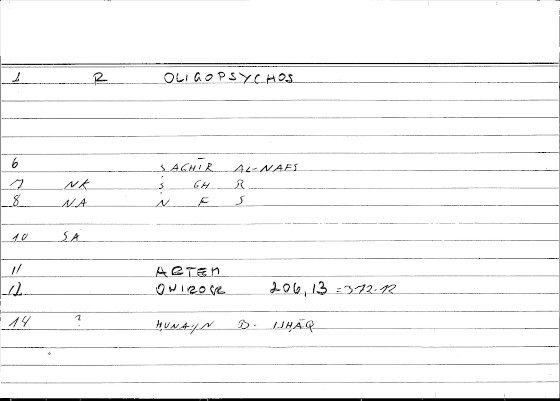 1 R OLIGOPSYCHOS
6 ṢAGHĪR AL-NAFS
7 NK Ṣ GH R
8 NA N F S
10 SA
11 ARTEM
12 ONIROCR 206,13 = 372.12
14 ? ḤUNAYN B. ISḤĀQ